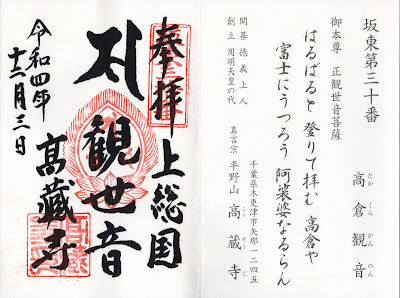 坂東第三十番
高倉観音
たかくらかんのん
御本尊 正観世音菩薩
はるばると 登りて拝む 高倉や
富士にうつろう 阿裟婆なるらん
開基 徳義上人
創立 用明天皇の代
千葉県木更津市矢那一二四五
真言宗 平野山 高蔵寺
こうぞうじ
奉拝 上総国
観世音
髙藏寺
令和四年
十二月三日